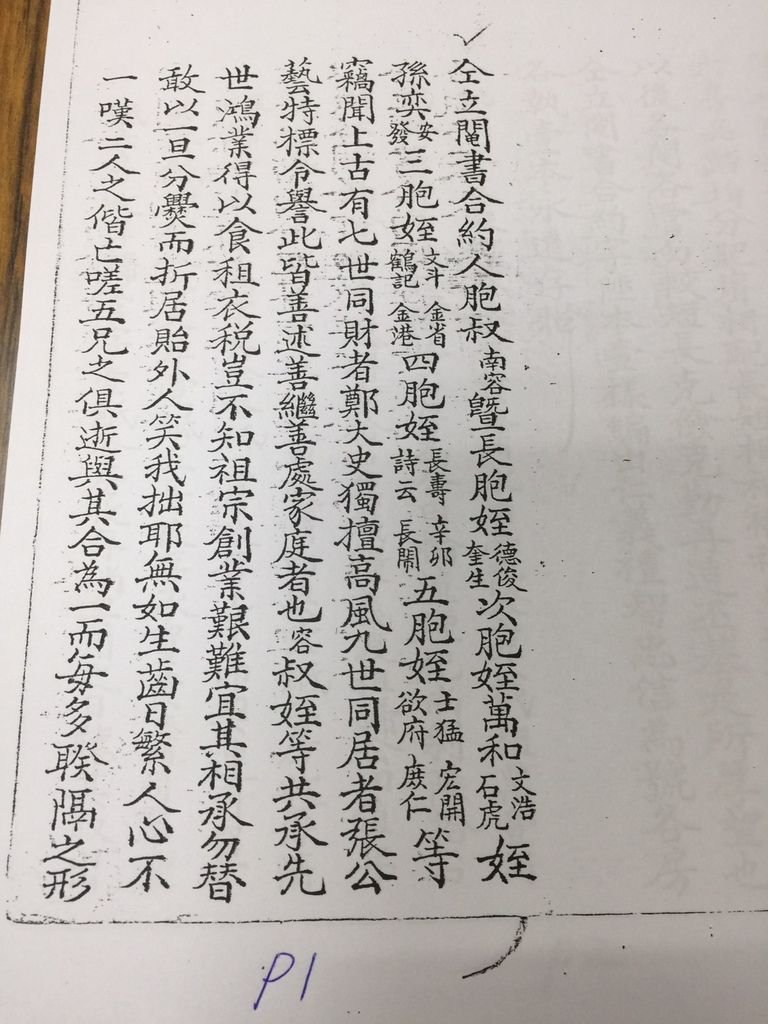 仝立鬮書合約人胞叔南容暨長胞姪德俊奎生次胞姪萬和文浩石虎姪
孫奕安發三胞姪文斗鶴記金省金港四胞姪長壽詩云辛卯長鬧五胞姪士猛欲府宏開庶仁等
竊聞上古有七世同財者鄭大史獨擅高風九世同居者張公
藝特標令譽此皆善述善繼善處家庭者也容叔姪等共承先
世鴻業得以食租衣稅豈不知祖宗創業艱難宜其相承勿替
敢以一旦分爨而折居貽外人笑我拙耶無如生齒日繁人心不
一嘆二人之偕亡嗟五兄之俱逝與其合為一而每多睽隔之形
P1